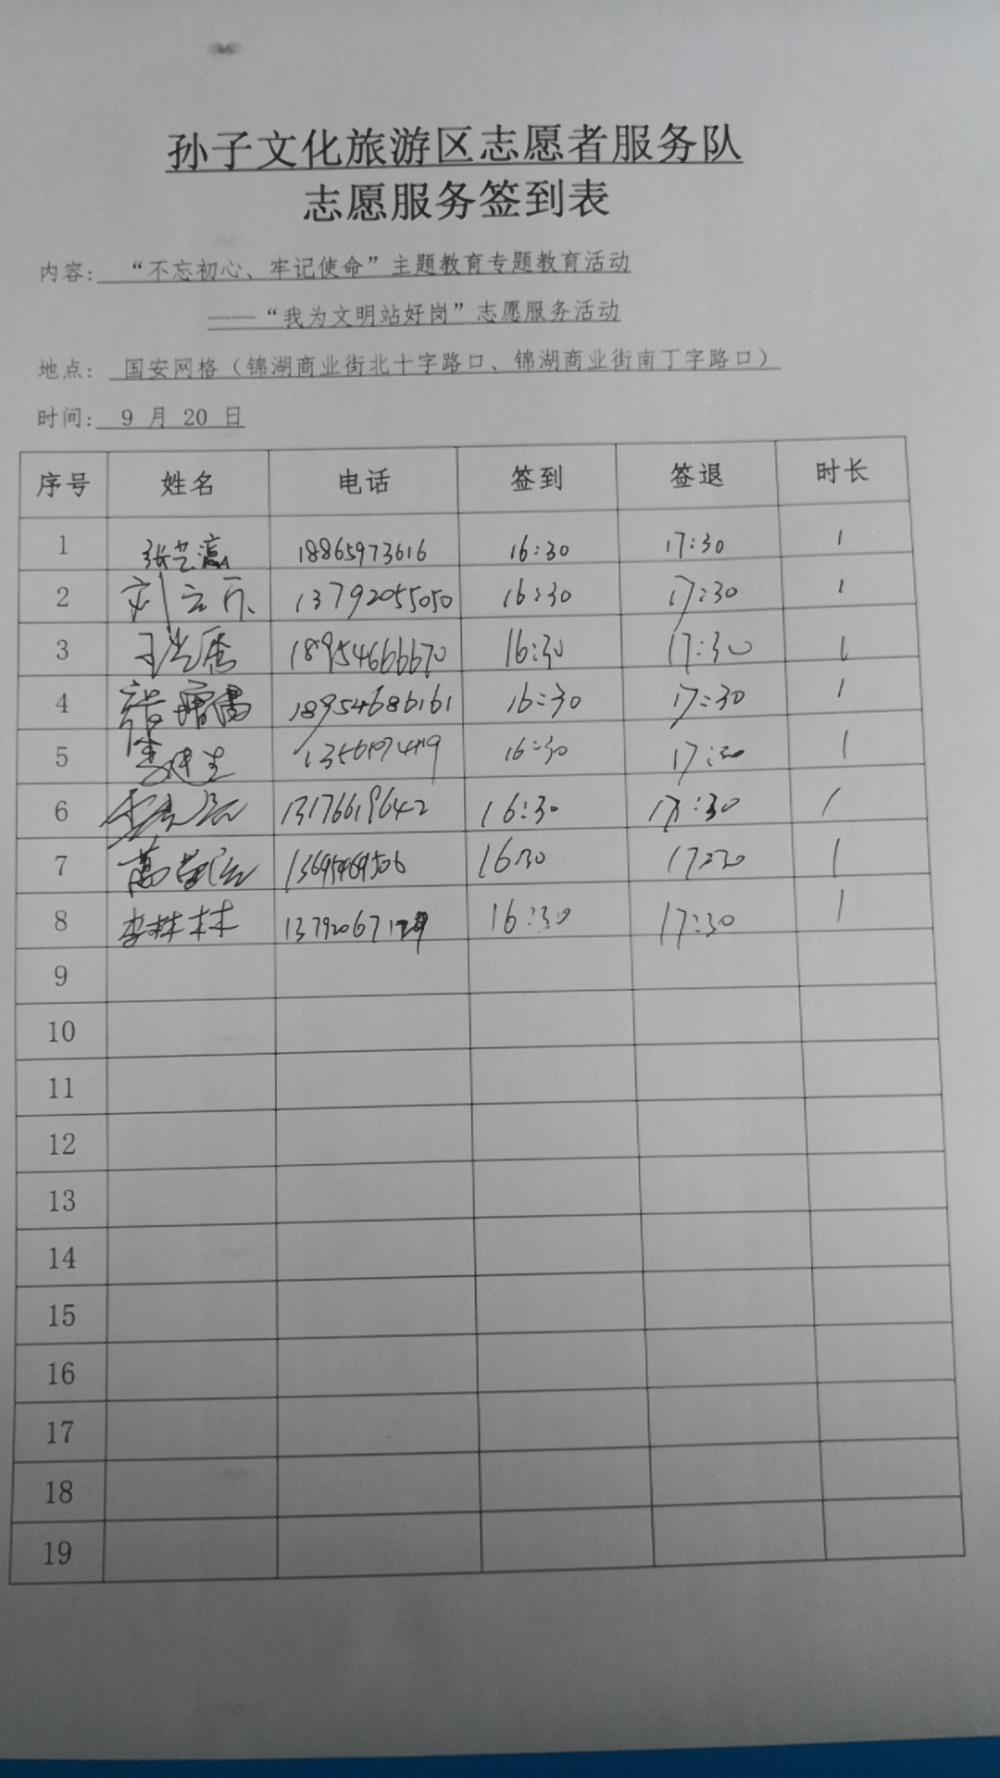 孙子文化旅游区志愿者服务队
志愿服务签到表
内容: “不忘初心、牢记使命”主题教育专题教育活动
——“我为文明站好岗”志愿服务活动
地点: 国安网格（锦湖商业街北十字路口、锦湖商业街南丁字路口）
时间: 9 月 20 日
序号 姓名 电话 签到 签退 时长
1 张艺瀛 18865973616 16:30 17:30 1
2 刘 13792055050 16:30 17:30 1
3 18954666670 16:30 17:30 1
4 18954686161 16:30 17:30 1
5 16:30 17:30 1
6 13176619642 16:30 17:30 1
7 16:30 17:30 1
8 李林林 16:30 17:30 1
9
10
11
12
13
14
15
16
17
18
19